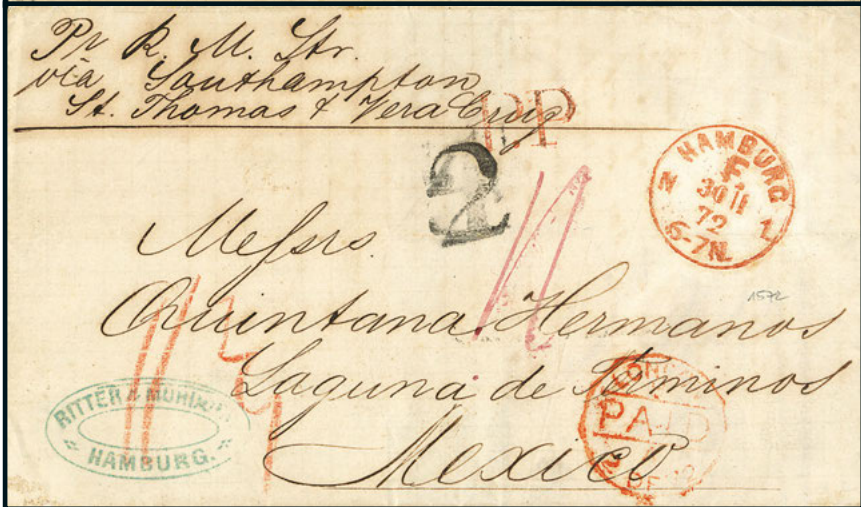 Pr R. M. Str.
via Southampton
St. Thomas & Vera Cruz
PP
2
HAMBURG
F.
30 11
72
6-7N.
N 1
Messrs.
Quintana Hermanos
Laguna de Términos
Mexico
1572
RITTER &
HAMBURG.
LONDON
PAID
2 DE 72